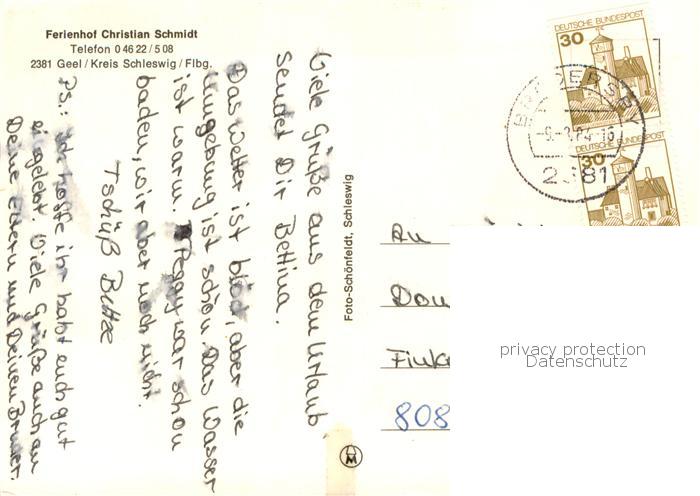 Ferienhof Christian Schmidt
Telefon 0 46 22 / 5 08
2381 Geel / Kreis Schleswig / Flbg.
Viele Grüße aus dem Urlaub
sendet Dir Bettina.
Das Wetter ist blöd, aber die
Umgebung ist schön. Das Wasser
ist warm. Peggy war schon
baden, wir aber noch nicht.
Tschüß
Ps.: Ich hoffe ihr habt euch gut
eingelebt. Viele Grüße auch an
Deine Eltern und Deinen Bruder.
Foto-Schönfeldt, Schleswig
DEUTSCHE BUNDESPOST
30
DEUTSCHE BUNDESPOST
30
2381
An
Don
Fink
808
privacy protection
Datenschutz